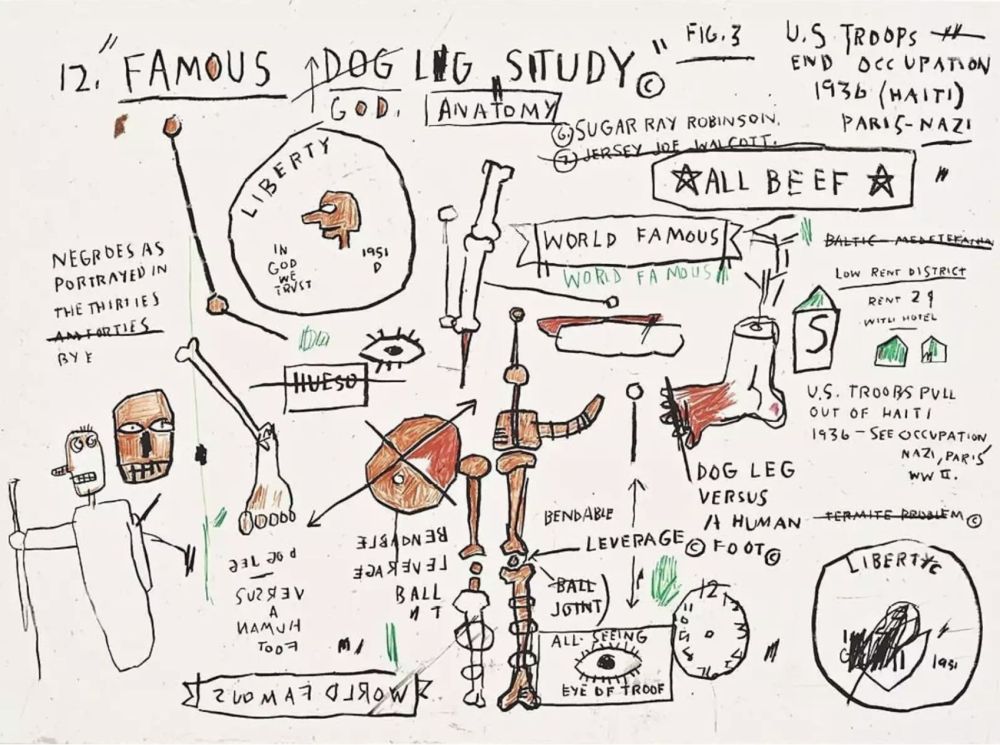 12. "FAMOUS DOG LEG STUDY" ©
FIG. 3
GOD.
ANATOMY
U.S TROOPS
END OCCUPATION
1936 (HAITI)
PARIS-NAZI
6. SUGAR RAY ROBINSON.
7. JERSEY JOE WALCOTT.
☆ALL BEEF☆ "
LIBERTY
IN
GOD
WE
TRUST
1951
D
WORLD FAMOUS
WORLD FAMOUS
BALTIC-
LOW RENT DISTRICT
RENT 2¢
WITH HOTEL
S
NEGROES AS
PORTRAYED IN
THE THIRTIES
AM FORTIES
BY E
HUESO
U.S. TROOBS PULL
OUT OF HAITI
1936 - SEE OCCUPATION
NAZI, PARIS
WW II.
TERMITE PROBLEM ©
DOG LEG
VERSUS
A HUMAN
FOOT ©
BENDABLE
LEVERAGE ©
BALL
JOINT)
DOG LEG
VERSUS
A
HUMAN
FOOT
BENDABLE
LEVERAGE
BALL
N T
ALL-SEEING
EYE OF TROOF
12
LIBERTY
1951
WORLD FAMOUS